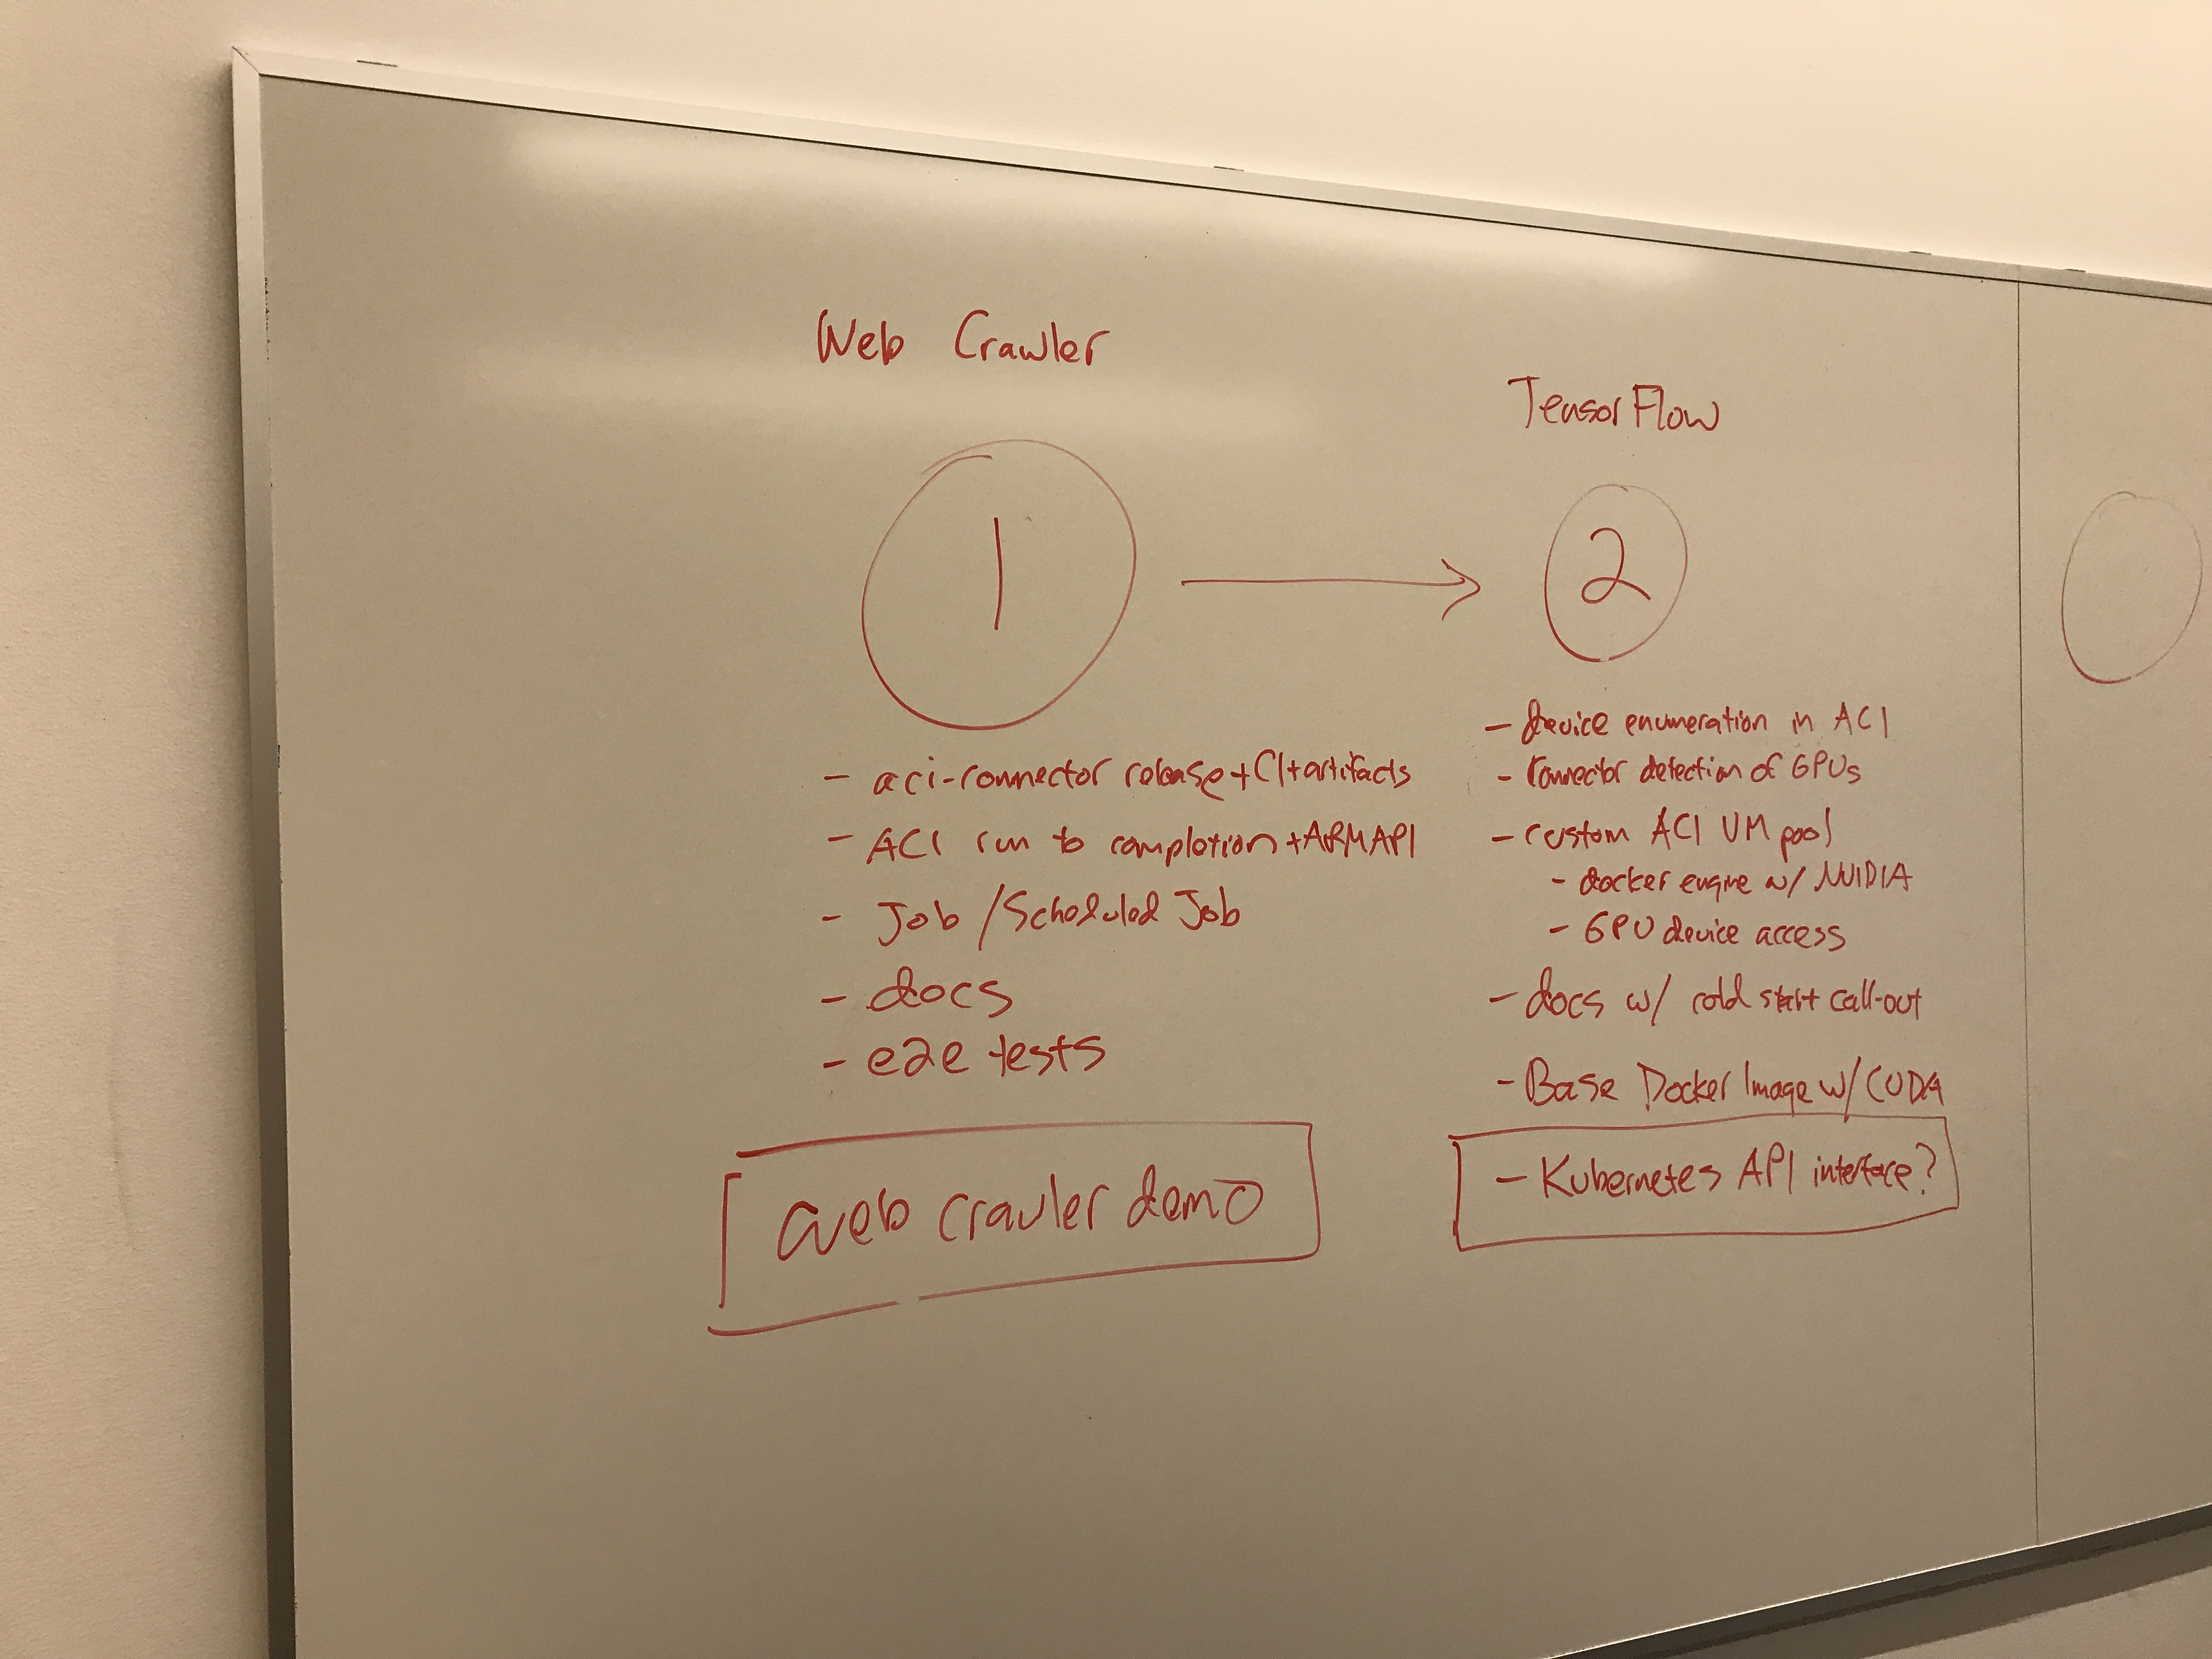 Web Crawler
1
- aci-connector release + CI + artifacts
- ACI run to completion + ARM API
- Job / Scheduled Job
- docs
- e2e tests
web crawler demo
TensorFlow
2
- device enumeration in ACI
- connector detection of GPUs
- custom ACI VM pool
- docker engine w/ NVIDIA
- GPU device access
- docs w/ cold start call-out
- Base Docker Image w/ CUDA
- Kubernetes API interface?